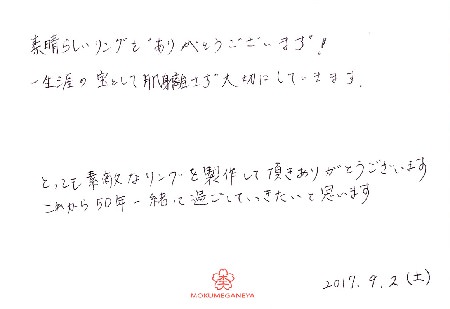 素晴らしいリングをありがとうございます!
一生涯の宝として肌身離さず大切にしていきます。
とっても素敵なリングを製作して頂きありがとうございます
これから50年一緒に過ごしていきたいと思います
MOKUMEGANEYA
2017. 9. 2 (土)